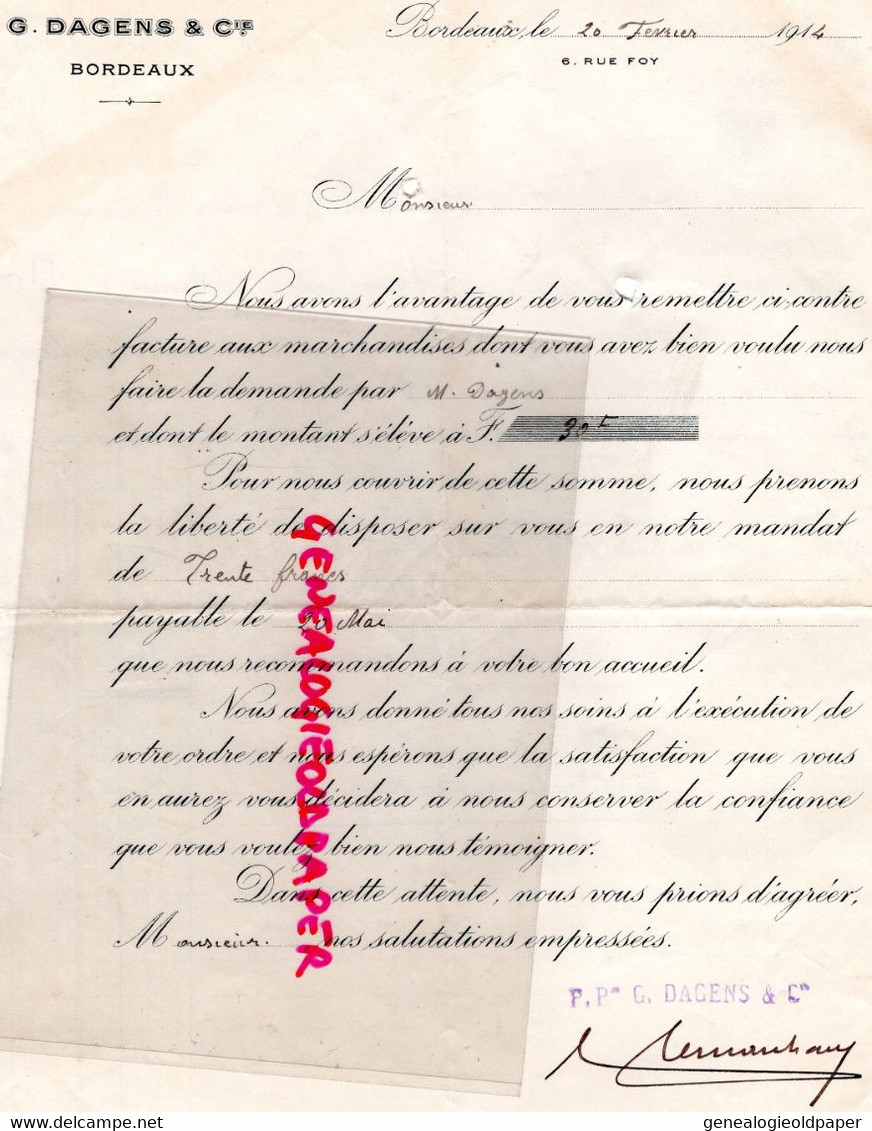 G. DAGENS & CIE
BORDEAUX
Bordeaux, le 20 Fevrier 1914
6, RUE FOY
Monsieur
Nous avons l'avantage de vous remettre ci-contre
facture aux marchandises dont vous avez bien voulu nous
faire la demande par M. Dagens
et dont le montant s'élève à F. 30 f
Pour nous couvrir de cette somme, nous prenons
la liberté de disposer sur vous en notre mandat
de Trente francs
payable le 20 Mai
que nous recommandons à votre bon accueil.
Nous avons donné tous nos soins à l'exécution de
votre ordre et nous espérons que la satisfaction que vous
en aurez vous décidera à nous conserver la confiance
que vous voulez bien nous témoigner.
Dans cette attente, nous vous prions d'agréer,
Monsieur. nos salutations empressées.
P. Pon G. DAGENS & Cie
GENEALOGIEOLDPAPER
genealogieoldpaper